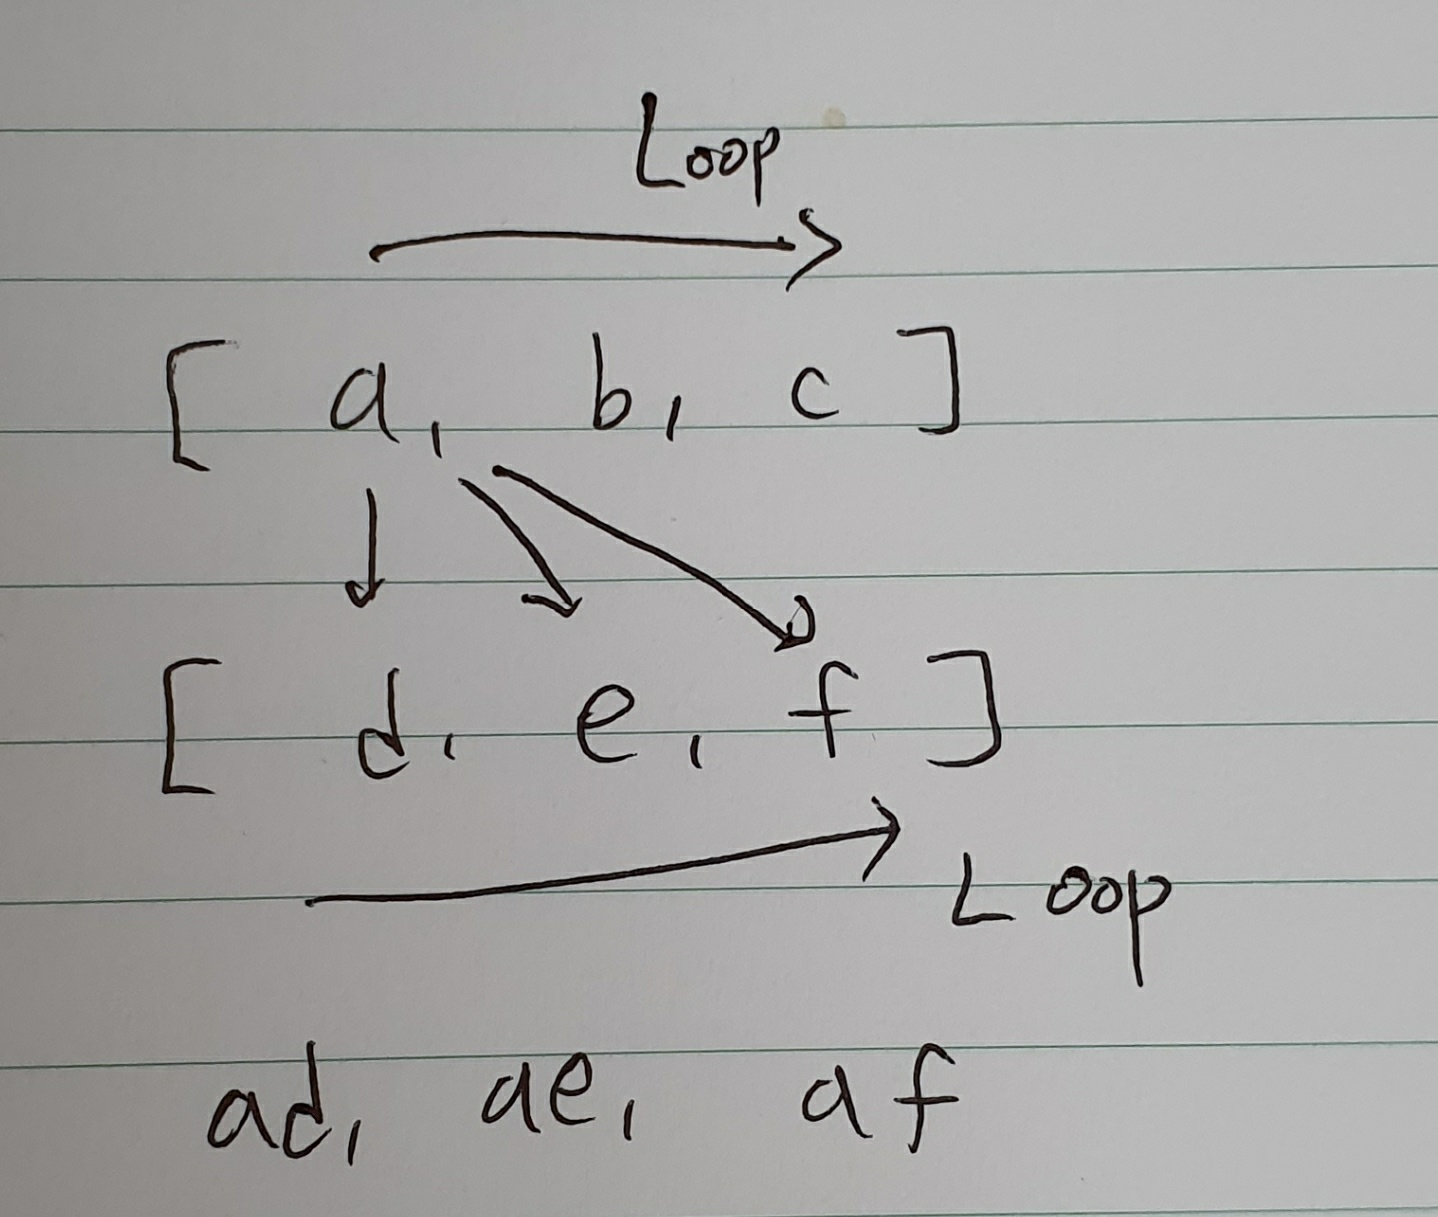 Loop
[ a, b, c ]
[ d, e, f ]
Loop
ad, ae, af